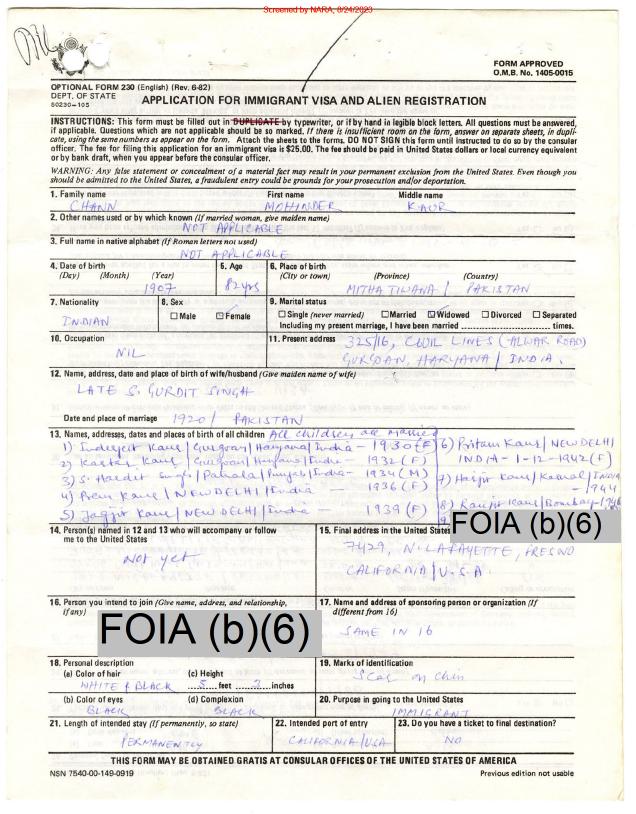 Screened by NARA, 8/24/2023
Nil
FORM APPROVED
O.M.B. No. 1405-0015
OPTIONAL FORM 230 (English) (Rev. 6-82)
DEPT. OF STATE
50230-105
APPLICATION FOR IMMIGRANT VISA AND ALIEN REGISTRATION
INSTRUCTIONS: This form must be filled out in DUPLICATE by typewriter, or if by hand in legible block letters. All questions must be answered,
if applicable. Questions which are not applicable should be so marked. If there is insufficient room on the form, answer on separate sheets, in dupli-
cate, using the same numbers as appear on the form. Attach the sheets to the forms. DO NOT SIGN this form until instructed to do so by the consular
officer. The fee for filing this application for an immigrant visa is $25.00. The fee should be paid in United States dollars or local currency equivalent
or by bank draft, when you appear before the consular officer.
WARNING: Any false statement or concealment of a material fact may result in your permanent exclusion from the United States. Even though you
should be admitted to the United States, a fraudulent entry could be grounds for your prosecution and/or deportation.
1. Family name First name Middle name
CHANN MOHINDER KAUR
2. Other names used or by which known (If married woman, give maiden name)
NOT APPLICABLE
3. Full name in native alphabet (If Roman letters not used)
NOT APPLICABLE
4. Date of birth 5. Age 6. Place of birth
(Day) (Month) (Year) (City or town) (Province) (Country)
1907 82 yrs MITHA TIWANA / PAKISTAN
7. Nationality 8. Sex 9. Marital status
INDIAN Male Female Single (never married) Married Widowed Divorced Separated
Including my present marriage, I have been married times.
10. Occupation 11. Present address
NIL 325/16, CIVIL LINES (ALWAR ROAD)
GURGOAN, HARYANA / INDIA.
12. Name, address, date and place of birth of wife/husband (Give maiden name of wife)
LATE S. GURDIT SINGH
Date and place of marriage 1920 / PAKISTAN
13. Names, addresses, dates and places of birth of all children All children are married
1) Inderjeet Kaur / Gurgoan / Haryana / India - 1930 (F)
2) Kartar Kaur / Gurgoan / Haryana / India - 1932 (F)
3) S. Hardit Singh / Patiala / Punjab / India - 1934 (M)
4) Prem Kaur / NEW DELHI / India - 1936 (F)
5) Jagjit Kaur / NEW DELHI / India - 1939 (F)
6) Pritam Kaur / NEW DELHI
INDIA - 1-12-1942 (F)
7) Harjit Kaur / Karnal / INDIA
- 1944
8) Ranjit Kaur / Bombay - 1946
FOIA (b)(6)
14. Person(s) named in 12 and 13 who will accompany or follow
me to the United States
Not yet
15. Final address in the United States
7429, N. LAFAYETTE, FRESNO
CALIFORNIA / U.S.A.
16. Person you intend to join (Give name, address, and relationship,
if any)
FOIA (b)(6)
17. Name and address of sponsoring person or organization (If
different from 16)
SAME IN 16
18. Personal description 19. Marks of identification
(a) Color of hair (c) Height Scar on chin
WHITE & BLACK 5 feet 2 inches
(b) Color of eyes (d) Complexion 20. Purpose in going to the United States
BLACK BLACK IMMIGRANT
21. Length of intended stay (If permanently, so state) 22. Intended port of entry 23. Do you have a ticket to final destination?
PERMANENTLY CALIFORNIA / USA NO
THIS FORM MAY BE OBTAINED GRATIS AT CONSULAR OFFICES OF THE UNITED STATES OF AMERICA
NSN 7540-00-149-0919 Previous edition not usable